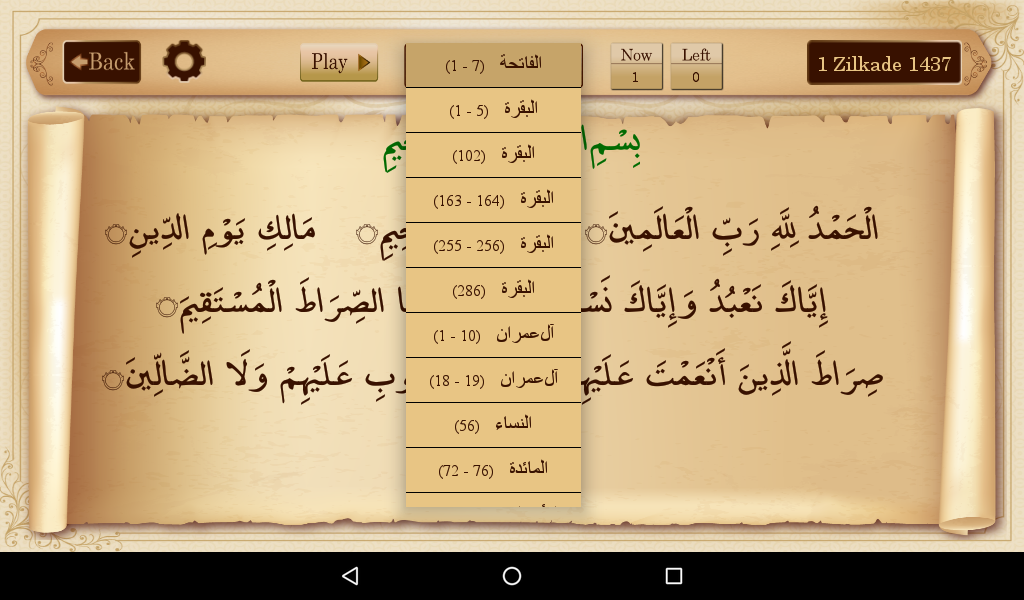 Back
Play
Now
1
Left
0
1 Zilkade 1437
الفاتحة (1 - 7)
البقرة (1 - 5)
البقرة (102)
البقرة (163 - 164)
البقرة (255 - 256)
البقرة (286)
آل‌عمران (1 - 10)
آل‌عمران (18 - 19)
النساء (56)
المائدة (72 - 76)
بِسْمِ
الْحَمْدُ لِلَّهِ رَبِّ الْعَالَمِينَ مَالِكِ يَوْمِ الدِّينِ
إِيَّاكَ نَعْبُدُ وَإِيَّاكَ الصِّرَاطَ الْمُسْتَقِيمَ
صِرَاطَ الَّذِينَ أَنْعَمْتَ عَلَيْهِمْ وَلَا الضَّالِّينَ